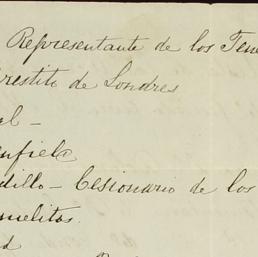 Representante de los Ten
restito de Londres
al –
enfield
dillo – Cesionario de los
melitas.
d